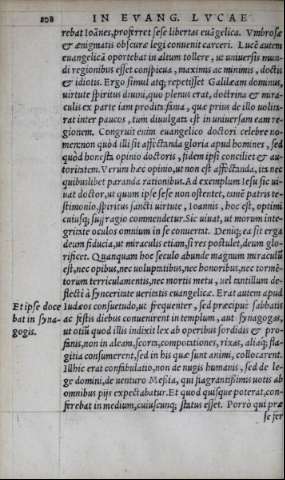 208 IN EVANG. LVCAE
rebat Ioãnes, proferret sese libertas euãgelica. Vmbrosæ
& ænigmatis obscuræ legi conuenit carceri. Lucẽ autem
euangelicã oportebat in altum tollere, ut uniuersis mun-
di regionibus esset conspicua, maximis ac minimis, doctis
& idiotis. Ergo simul atq; repetijsset Galilæam dominus,
uirtute spiritus diuini, quo plenus erat, doctrina & mira-
culis ex parte iam prodita fama, quæ prius de illo uolita-
rat inter paucos, tum diuulgata est in uniuersam eam re-
gionem. Congruit enim euangelico doctori celebre no-
men: non quòd illi sit affectanda gloria apud homines, sed
quòd honesta opinio doctoris, fidem ipsi conciliet & au-
toritatem. Verum hæc opinio, ut non est affectanda, ita nec
quibuslibet paranda rationibus. Ad exemplum Iesu sic ui-
uat doctor, ut quum ipse sese non ostentet, tamẽ patris te-
stimonio, spiritus sancti uirtute, Ioannis, hoc est, optimi
cuiusq; suffragio commendetur. Sic uiuat, ut morum inte-
gritate oculos omnium in se conuertat. Deniq; ea sit erga
deum fiducia, ut miraculis etiam, si res postulet, deum glo-
rificet. Quanquam hoc seculo abunde magnum miraculũ
est, nec opibus, nec uoluptatibus, nec honoribus, nec tormẽ-
torum terriculamentis, nec mortis metu, uel tantillum de-
flecti à synceritate ueritatis euangelicæ. Erat autem apud
Et ipse doce Iudæos consuetudo, ut frequenter, sed præcipue sabbatis
bat in syna- ac festis diebus conuenirent in templum, aut synagogas,
gogis. ut otiũ quod illis indixit lex ab operibus sordidis & pro-
fanis, non in aleam, scorta, compotationes, rixas, aliaq; fla-
gitia consumerent, sed in his quæ sunt animi, collocarent.
Illhic erat confabulatio, non de nugis humanis, sed de le-
ge domini, de uenturo Messia, qui flagrantissimis uotis ab
omnibus pijs expectabatur. Et quod quisque poterat, con-
ferebat in medium, cuiuscunq; status esset. Porrò qui præ
se fer